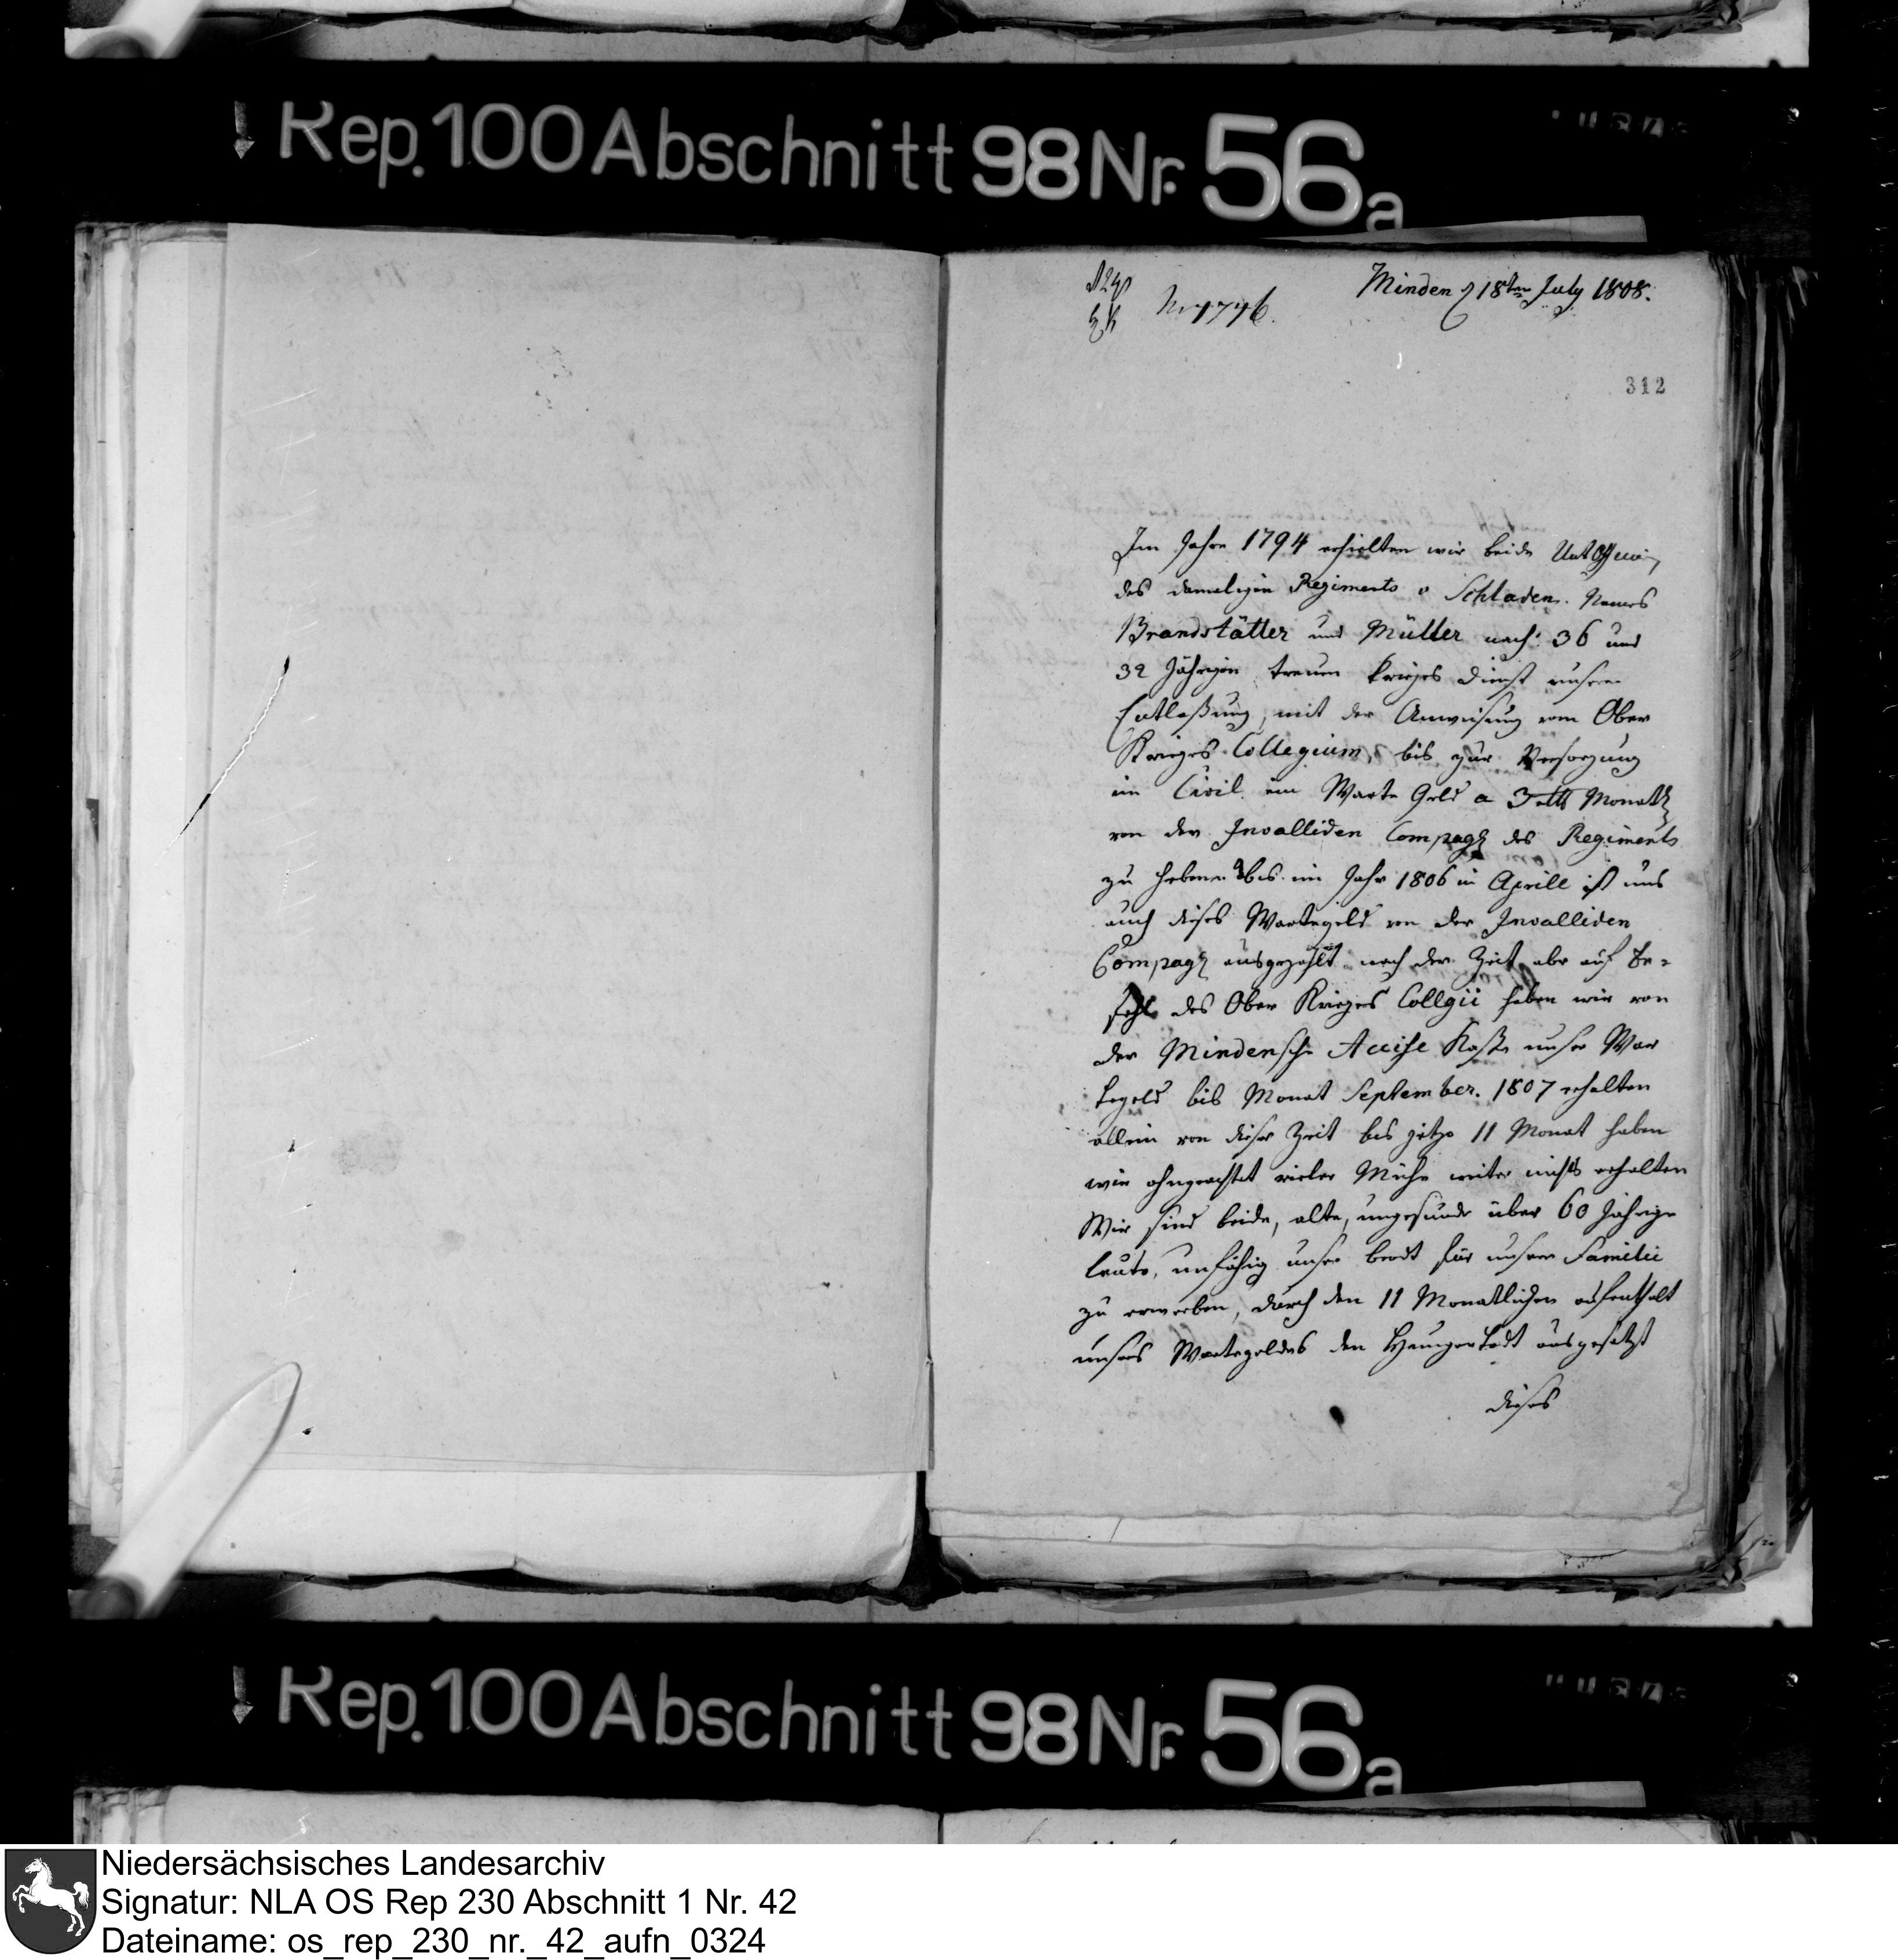 Rep. 100 Abschnitt 98 Nr. 56a
Minden d 18ten July 1808.
No 1746.
312
Im Jahre 1794 erhielten wir beide UntOffiçi
des damaligen Regiments v Schladen. Namens
Brandstätter und Müller nach: 36 und
32 Jährigen treuen Krieges dienst unsere
Entlaßung, mit der Anweisung vom Ober
Krieges Collegium, bis zur Versorgung
im Civil ein Warte Geld a 3 rtl Monatl
von der Invalliden Compag des Regiments
zu heben bis im Jahr 1806 in Aprill ist uns
auch dieses Wartegeld von der Invalliden
Compag ausgezahlt nach der Zeit aber auf Be=
fehl des Ober Krieges Collgii haben wir von
der Mindensche Accise Kaße unser War
tegeld bis Monat September. 1807 erhalten
allein von dieser Zeit bis jetzo 11 Monat haben
wir ohngeachtet vieler Mühe weiter nichts erhalten
Wir sind beide, alte, ungesunde über 60 Jährige
leute, unfähig unser brodt für unsere Familie
zu erwerben, durch den 11 Monatlichen aufenthalt
unsers Wartegeldes den Hungertodt ausgesetzt
dieses
Rep. 100 Abschnitt 98 Nr. 56a
Niedersächsisches Landesarchiv
Signatur: NLA OS Rep 230 Abschnitt 1 Nr. 42
Dateiname: os_rep_230_nr._42_aufn_0324